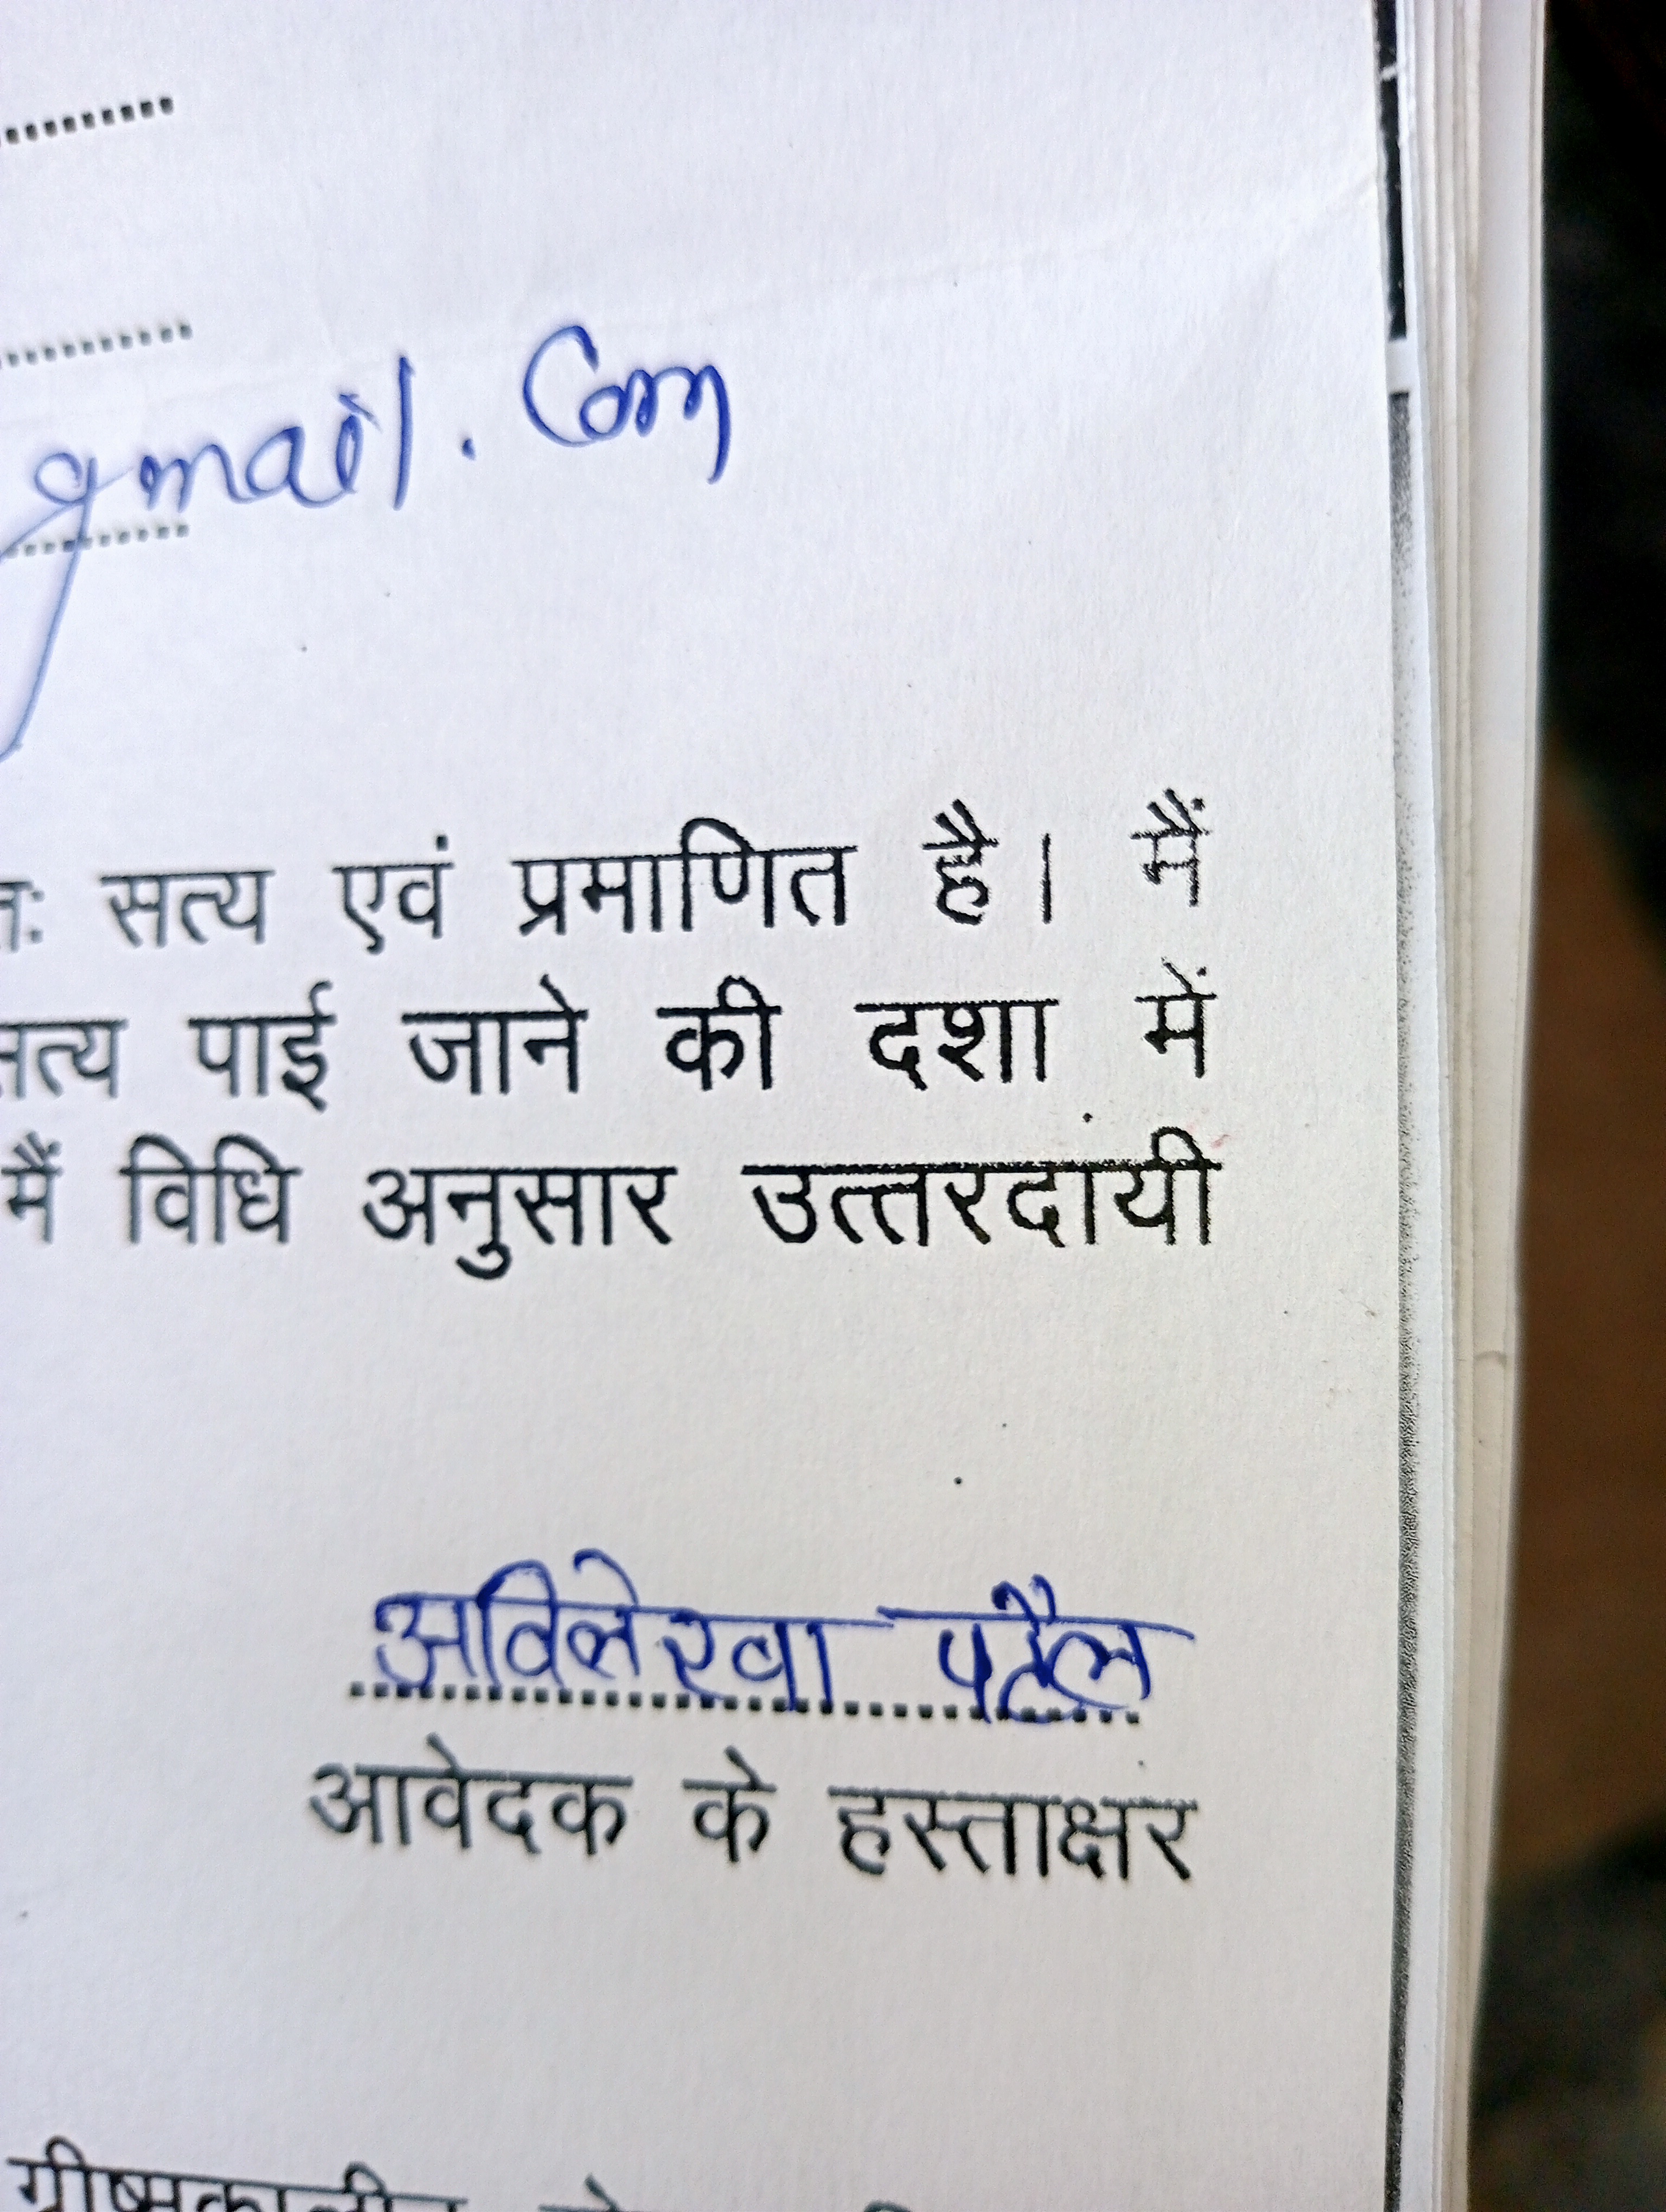 gmail.com
तः सत्य एवं प्रमाणित है। मैं
सत्य पाई जाने की दशा में
मैं विधि अनुसार उत्तरदायी
अविलेखा पटैल
आवेदक के हस्ताक्षर
ग्रीष्मकालीन